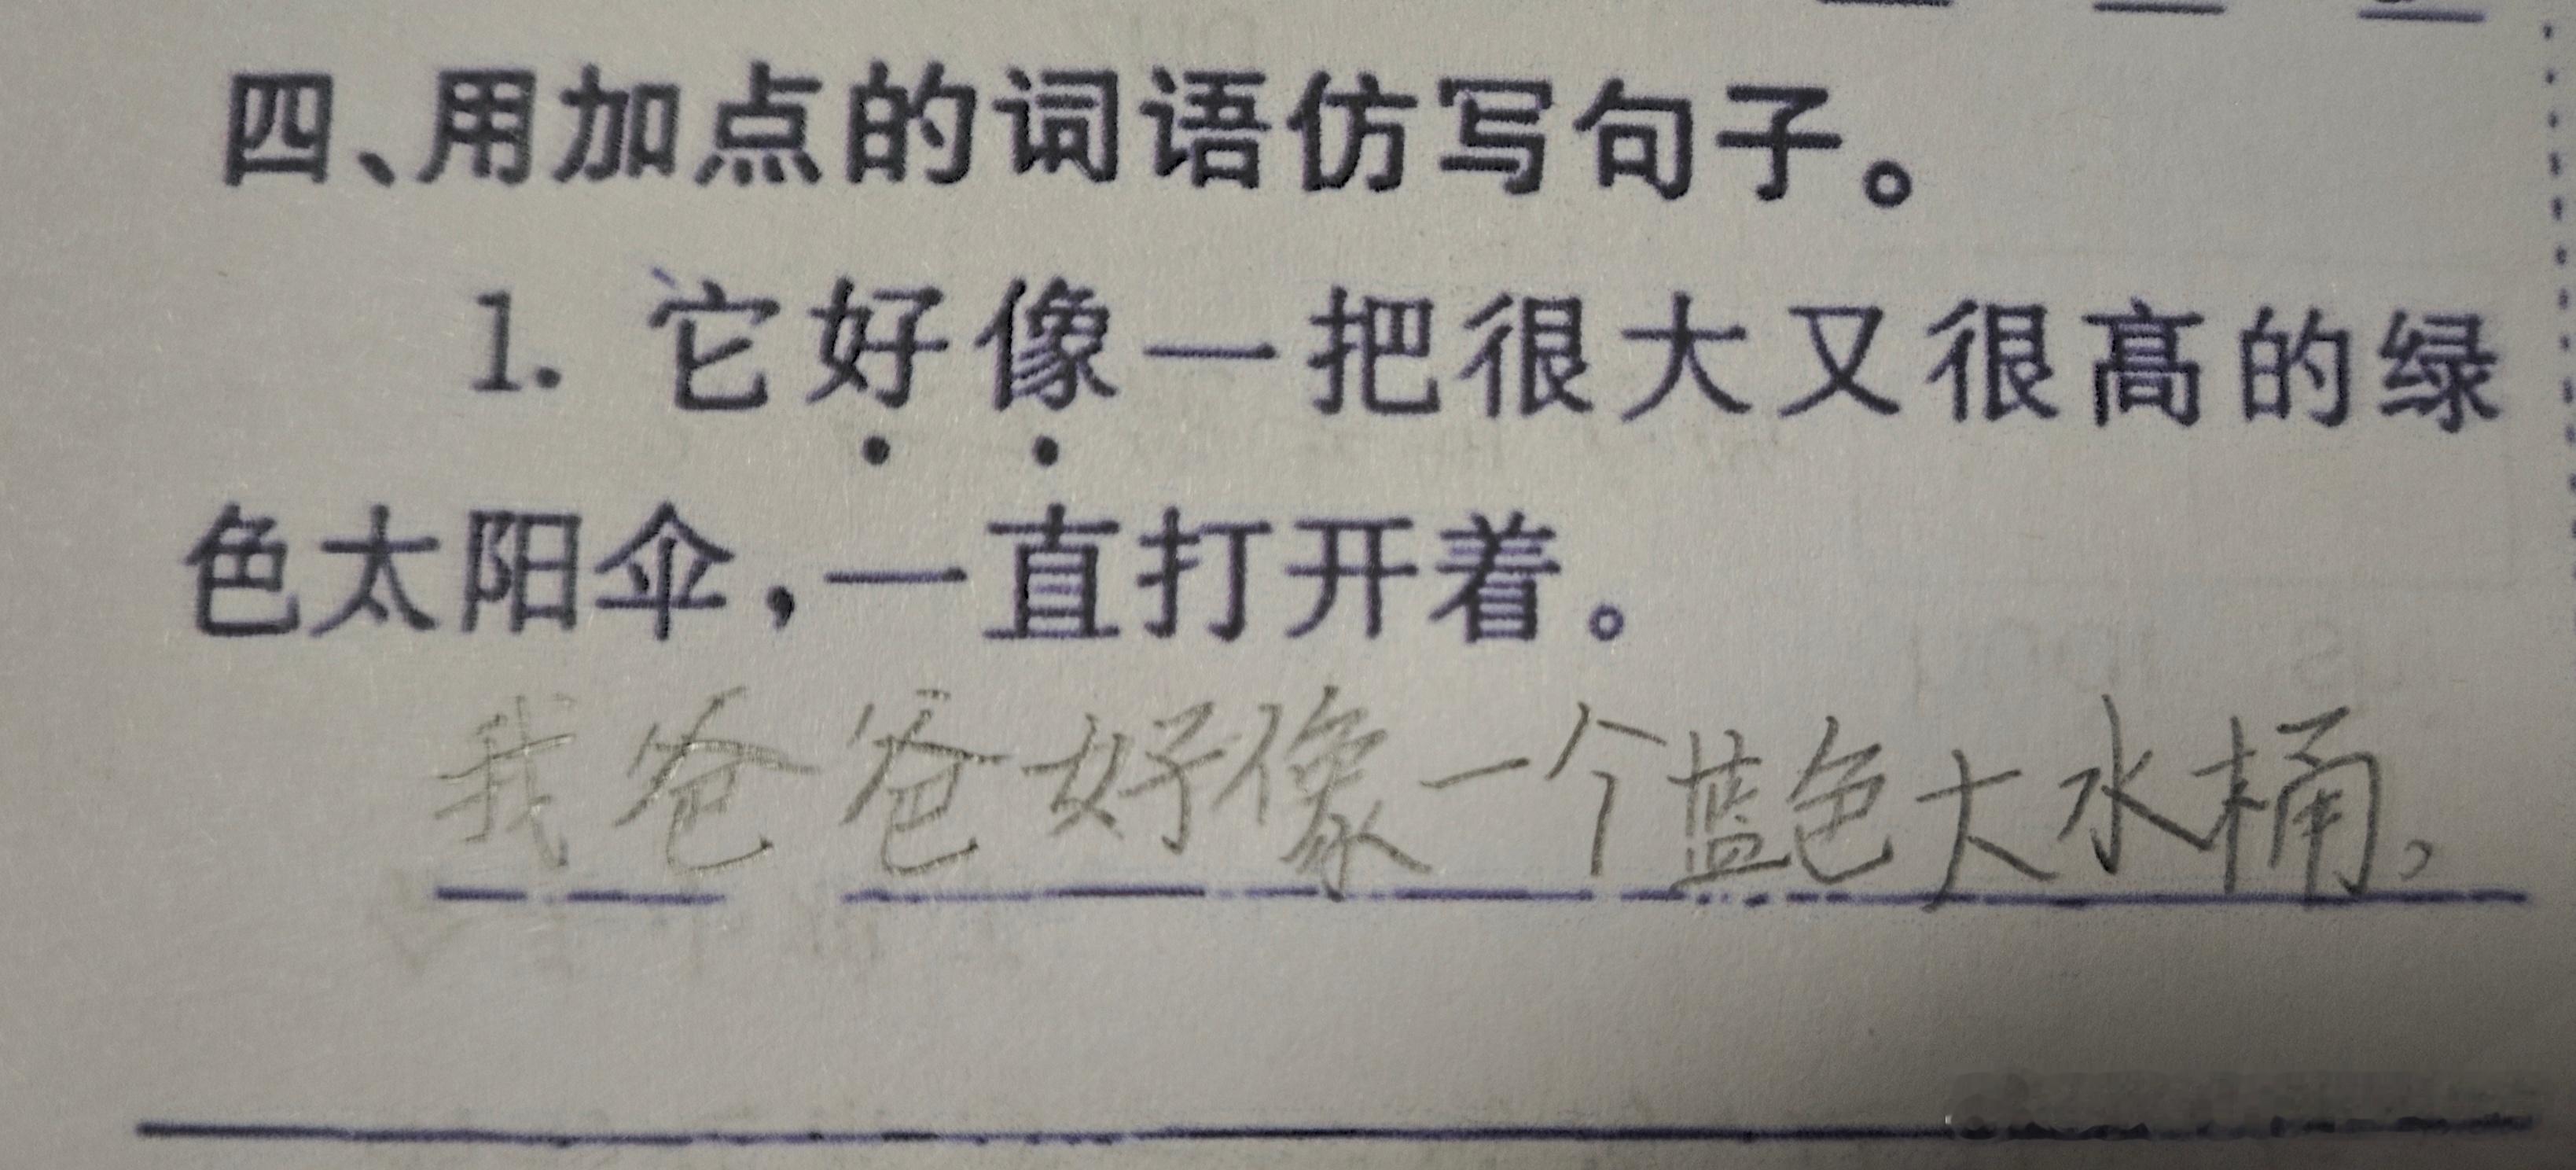 四、用加点的词语仿写句子。
1. 它好像一把很大又很高的绿
色太阳伞,一直打开着。
我爸爸好像一个蓝色大水桶,